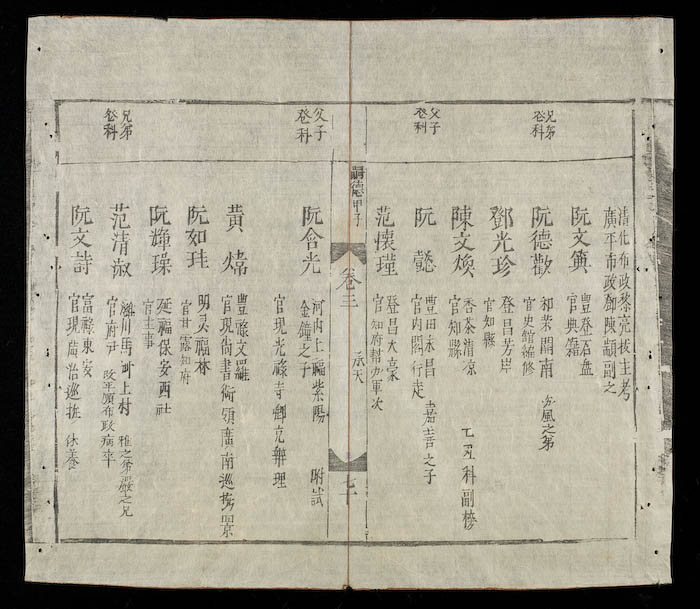 清化布政黎亮拔主考
廣平布政鄧陳顓副之
阮文
豊登石盘
官典籍
兄弟
登科
阮德歡
和榮閑南 方風之弟
官史館編修
鄧光珍
登昌芳岸
官知縣
陳文煥
香茶清凉 乙丑科副榜
官知縣
父子
登科
阮懿
豊田永昌 嘉善之子
官内閣行走
范懷瑾
登昌大豪
官知府幇办軍次
嗣德甲子
卷三
承天
七十
父子
登科
阮含光
河内上福紫陽 附試
金鐘之子
官現光祿寺卿充辦理
黄煒
豊祿文羅
官現尚書銜領廣南巡撫
阮如珪
明灵福林
官甘露知府
阮輝璪
延福保安西社
官主事
兄弟
登科
范清淑
川馬河上村 雅之弟 之兄
官府尹 改平順布政病卒
阮文詩
富祿東安
官現廣治巡撫 休養